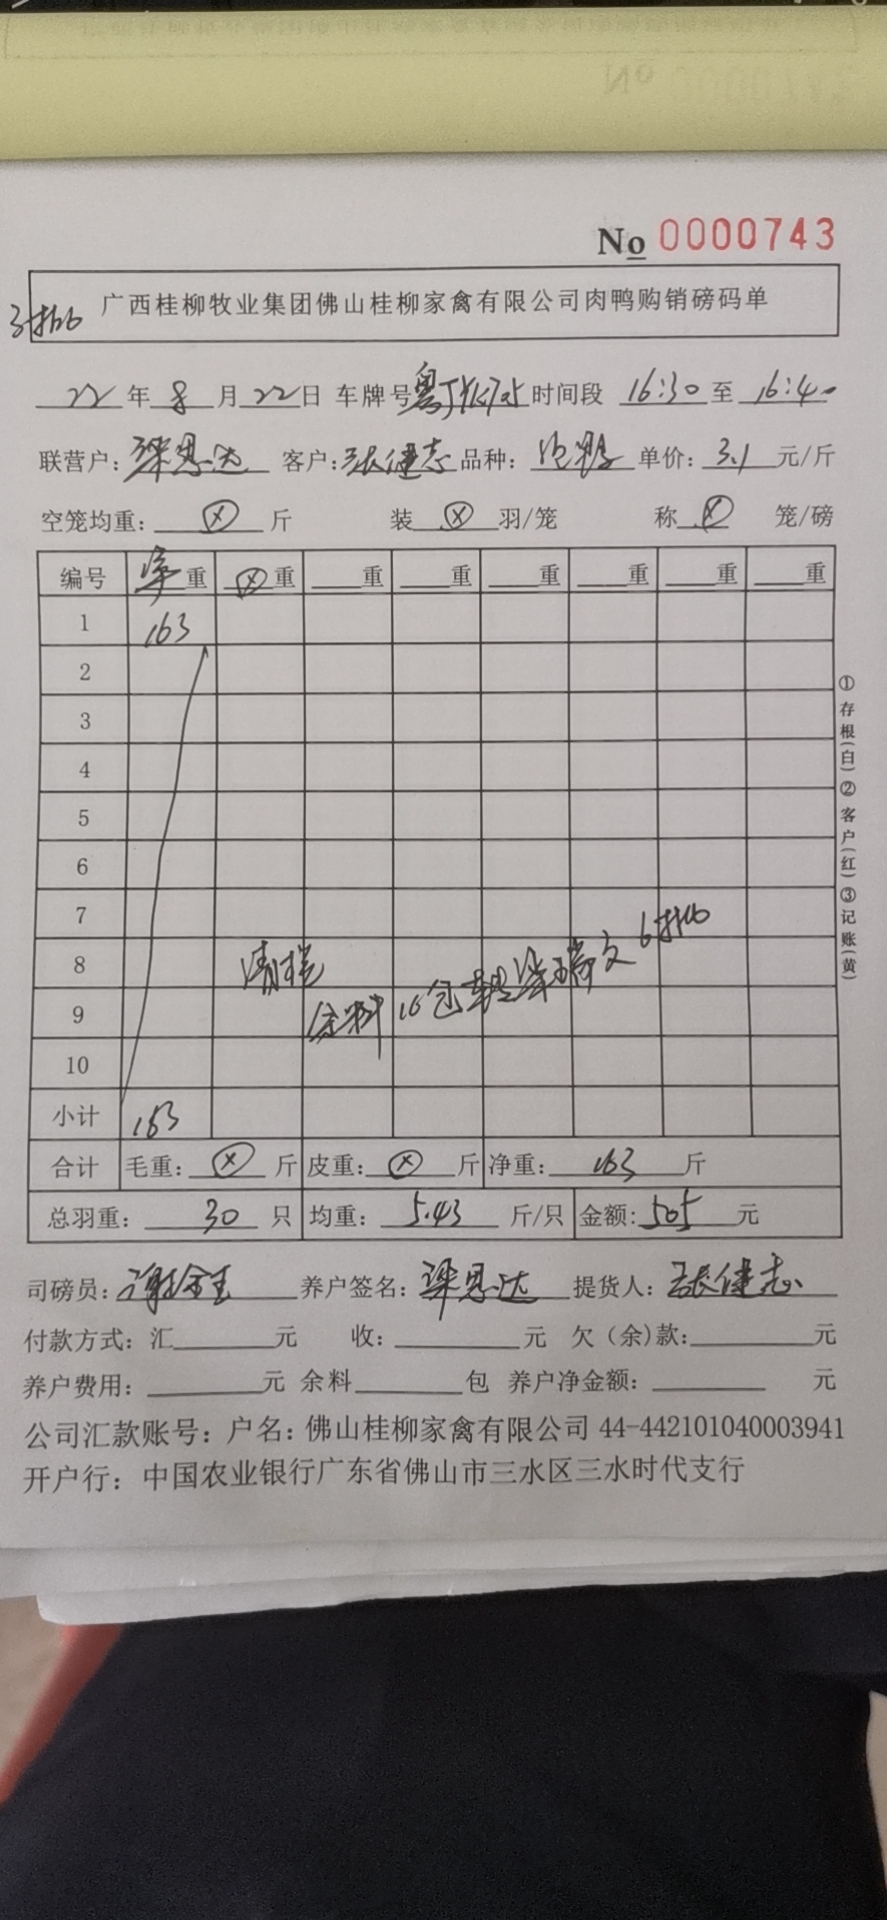 No 0000743
广西桂柳牧业集团佛山桂柳家禽有限公司肉鸭购销磅码单
22年8月22日 车牌号 时间段 16:30至16:40
联营户：梁恩达 客户：张健志 品种： 单价：3.1元/斤
空笼均重：ⓧ斤 装ⓧ羽/笼 称ⓧ笼/磅
编号 净重 ⓧ重 重 重 重 重 重 重
1 163
2
3
4
5
6
7
8 清棚
9 余料16包转梁瑞文6批
10
小计 163
合计 毛重：ⓧ斤 皮重：ⓧ斤 净重：163斤
总羽重：30只 均重：5.43斤/只 金额：505元
司磅员： 养户签名：梁恩达 提货人：张健志
付款方式：汇 元 收： 元 欠（余）款： 元
养户费用： 元 余料 包 养户净金额： 元
公司汇款账号：户名：佛山桂柳家禽有限公司 44-442101040003941
开户行：中国农业银行广东省佛山市三水区三水时代支行
①存根(白)②客户(红)③记账(黄)